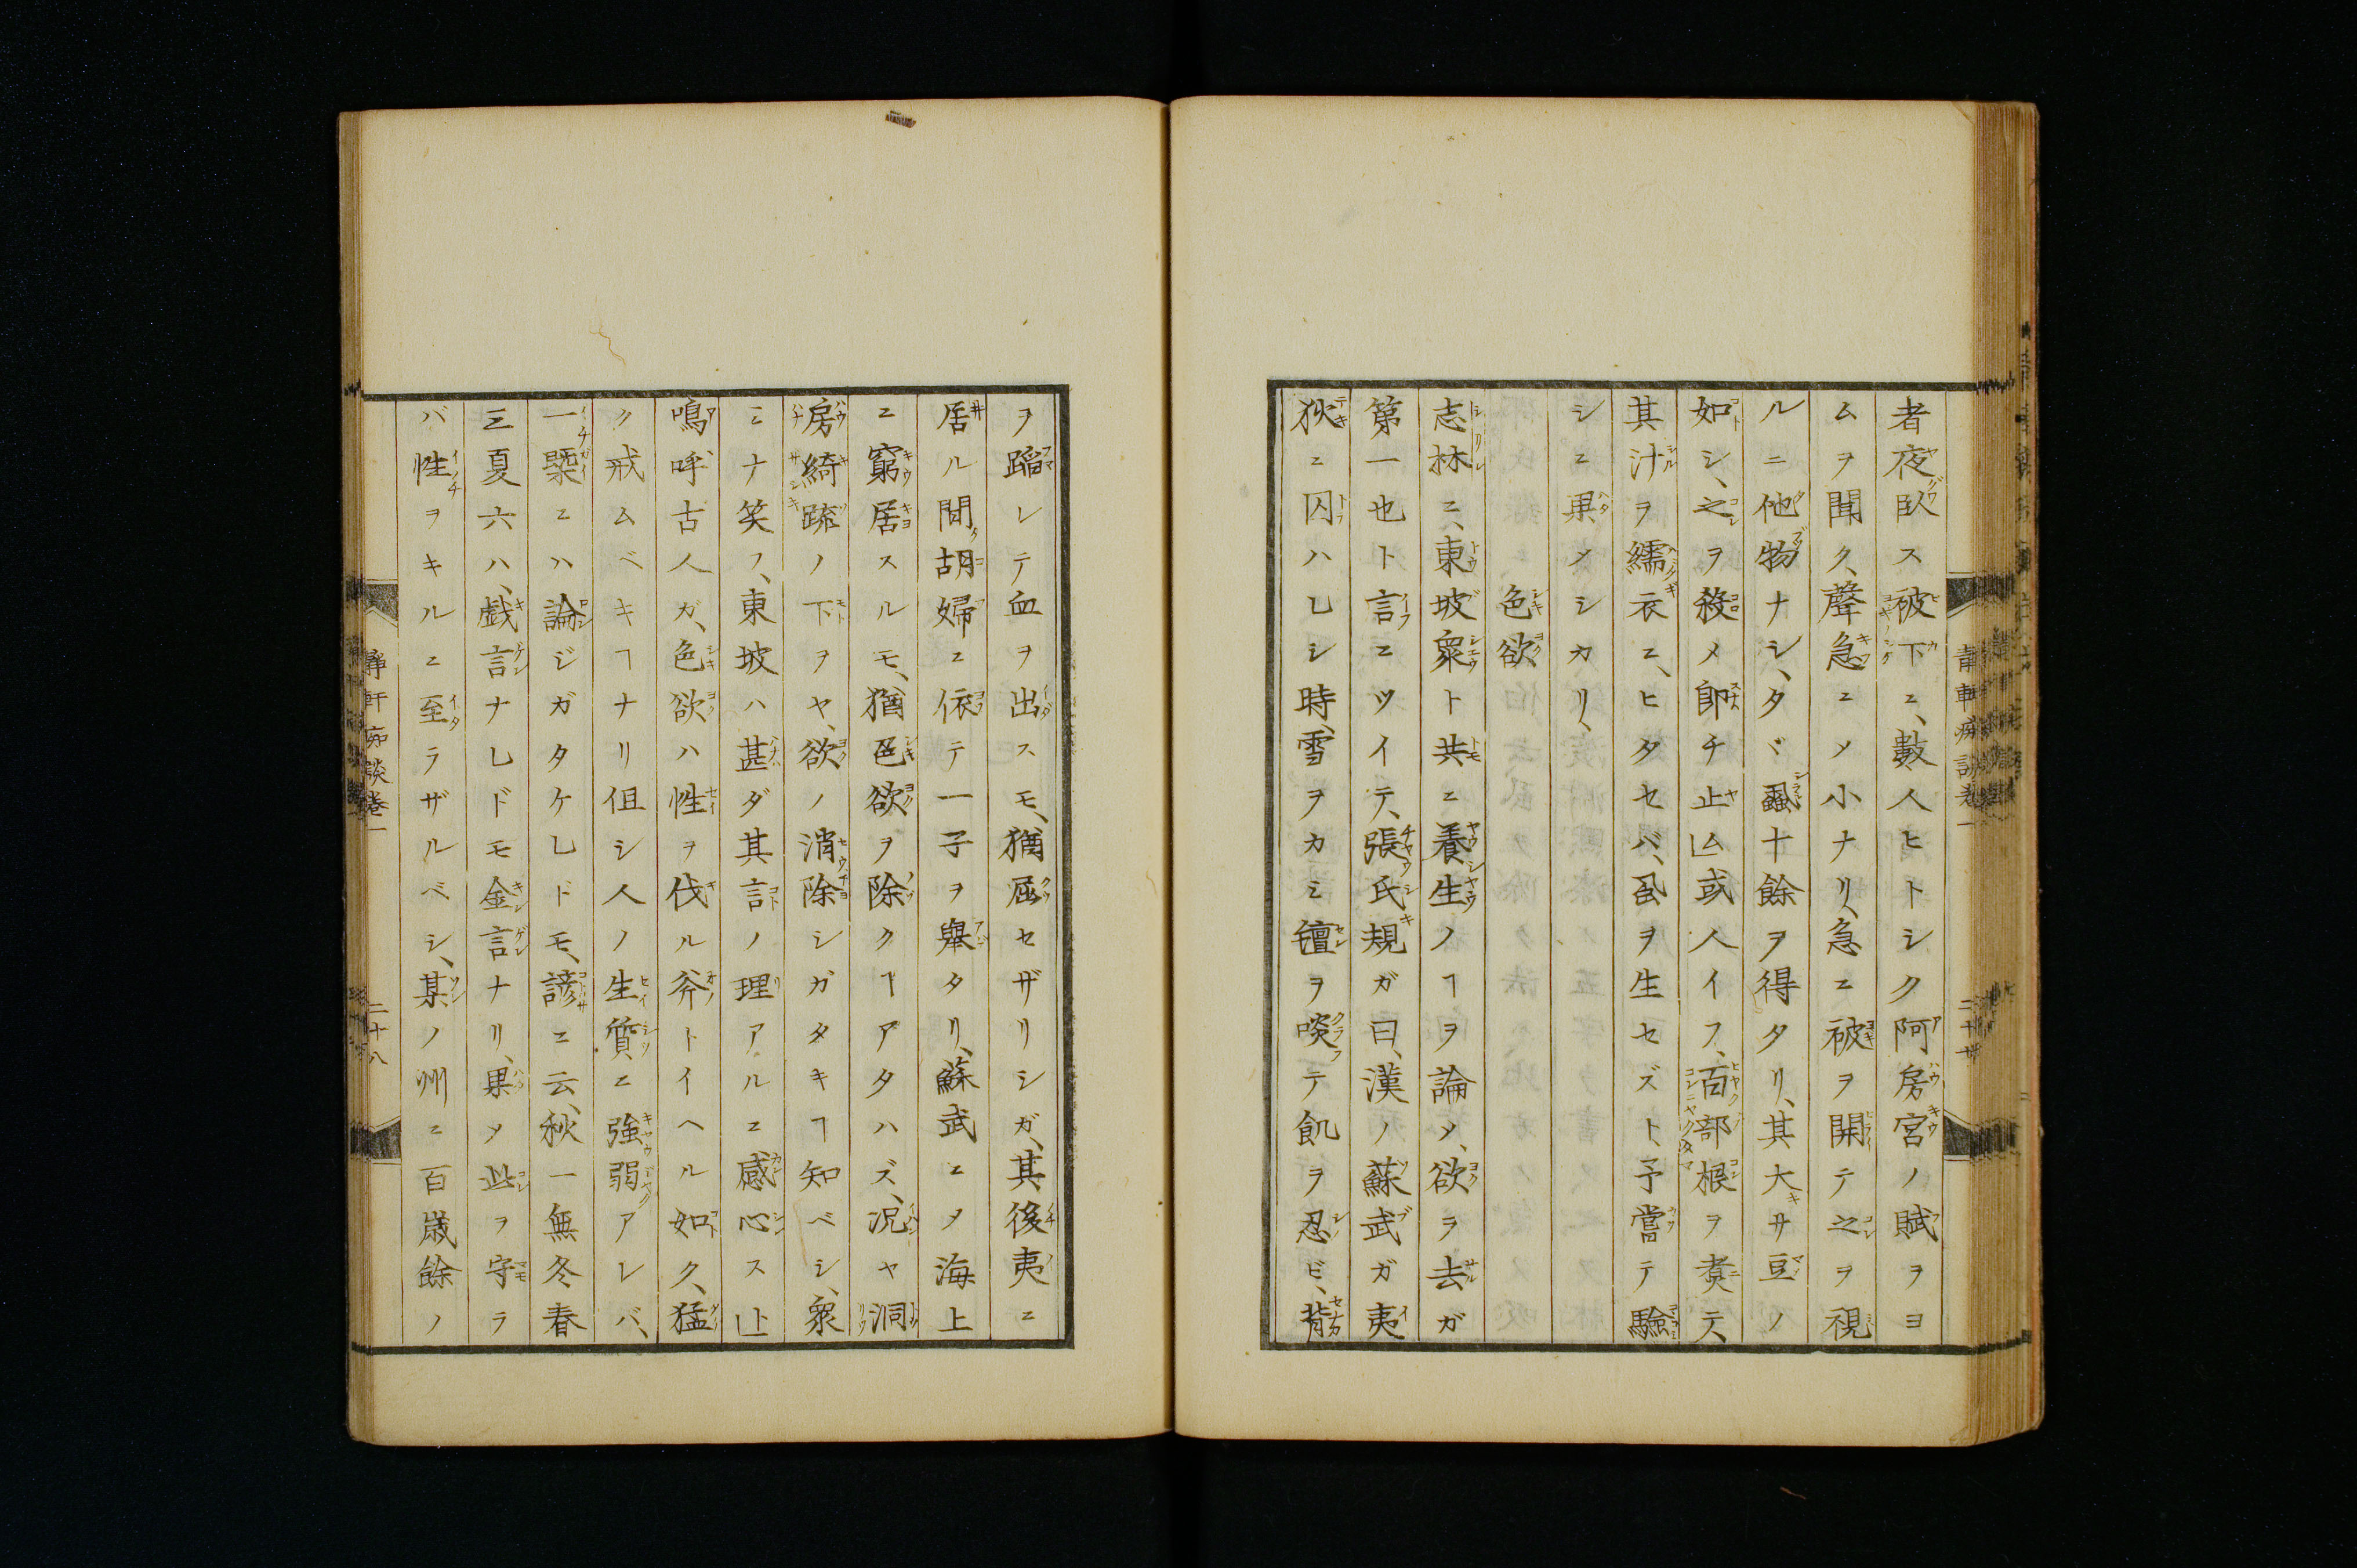 者夜臥ス被下ニ、數人ヒトシク阿房宮ノ賦ヲヨ
ムヲ聞ク、聲急ニメ小ナリ、急ニ被ヲ開テ之ヲ視
ルニ他物ナシ、タヾ蝨十餘ヲ得タリ、其大サ豆ノ
如シ、之ヲ殺メ即チ止ム」或人イフ、百部根ヲ煮テ、
其汁ヲ繻衣ニ、ヒタセバ、虱ヲ生セズト、予嘗テ驗
シニ果メシカリ、
色欲
志林ニ、東坡衆ト共ニ養生ノヿヲ論メ、欲ヲ去ガ
第一也ト言ニツイテ、張氏規ガ曰、漢ノ蘇武ガ夷
狄ニ囚ハレシ時、雪ヲカミ氊ヲ啖テ飢ヲ忍ビ、背
ヲ蹈レテ血ヲ出スモ、猶屈セザリシガ、其後夷ニ
居ル間胡婦ニ依テ一子ヲ舉タリ、蘇武ニメ海上
ニ窮居スルモ、猶色欲ヲ除クヿアタハズ、况ヤ洞
房綺疏ノ下ヲヤ、欲ノ消除シガタキヿ知ベシ、衆
ミナ笑フ、東坡ハ甚ダ其言ノ理アルニ感心スト」
鳴呼古人ガ、色欲ハ性ヲ伐ル斧トイヘル如ク、猛
ク戒ムベキヿナリ但シ人ノ生質ニ強弱アレバ、
一槩ニハ論ジガタケレドモ、諺ニ云、秋一無冬春
三夏六ハ、戯言ナレドモ金言ナリ、果メ此ヲ守ラ
バ性ヲキルニ至ラザルベシ、某ノ州ニ百歳餘ノ